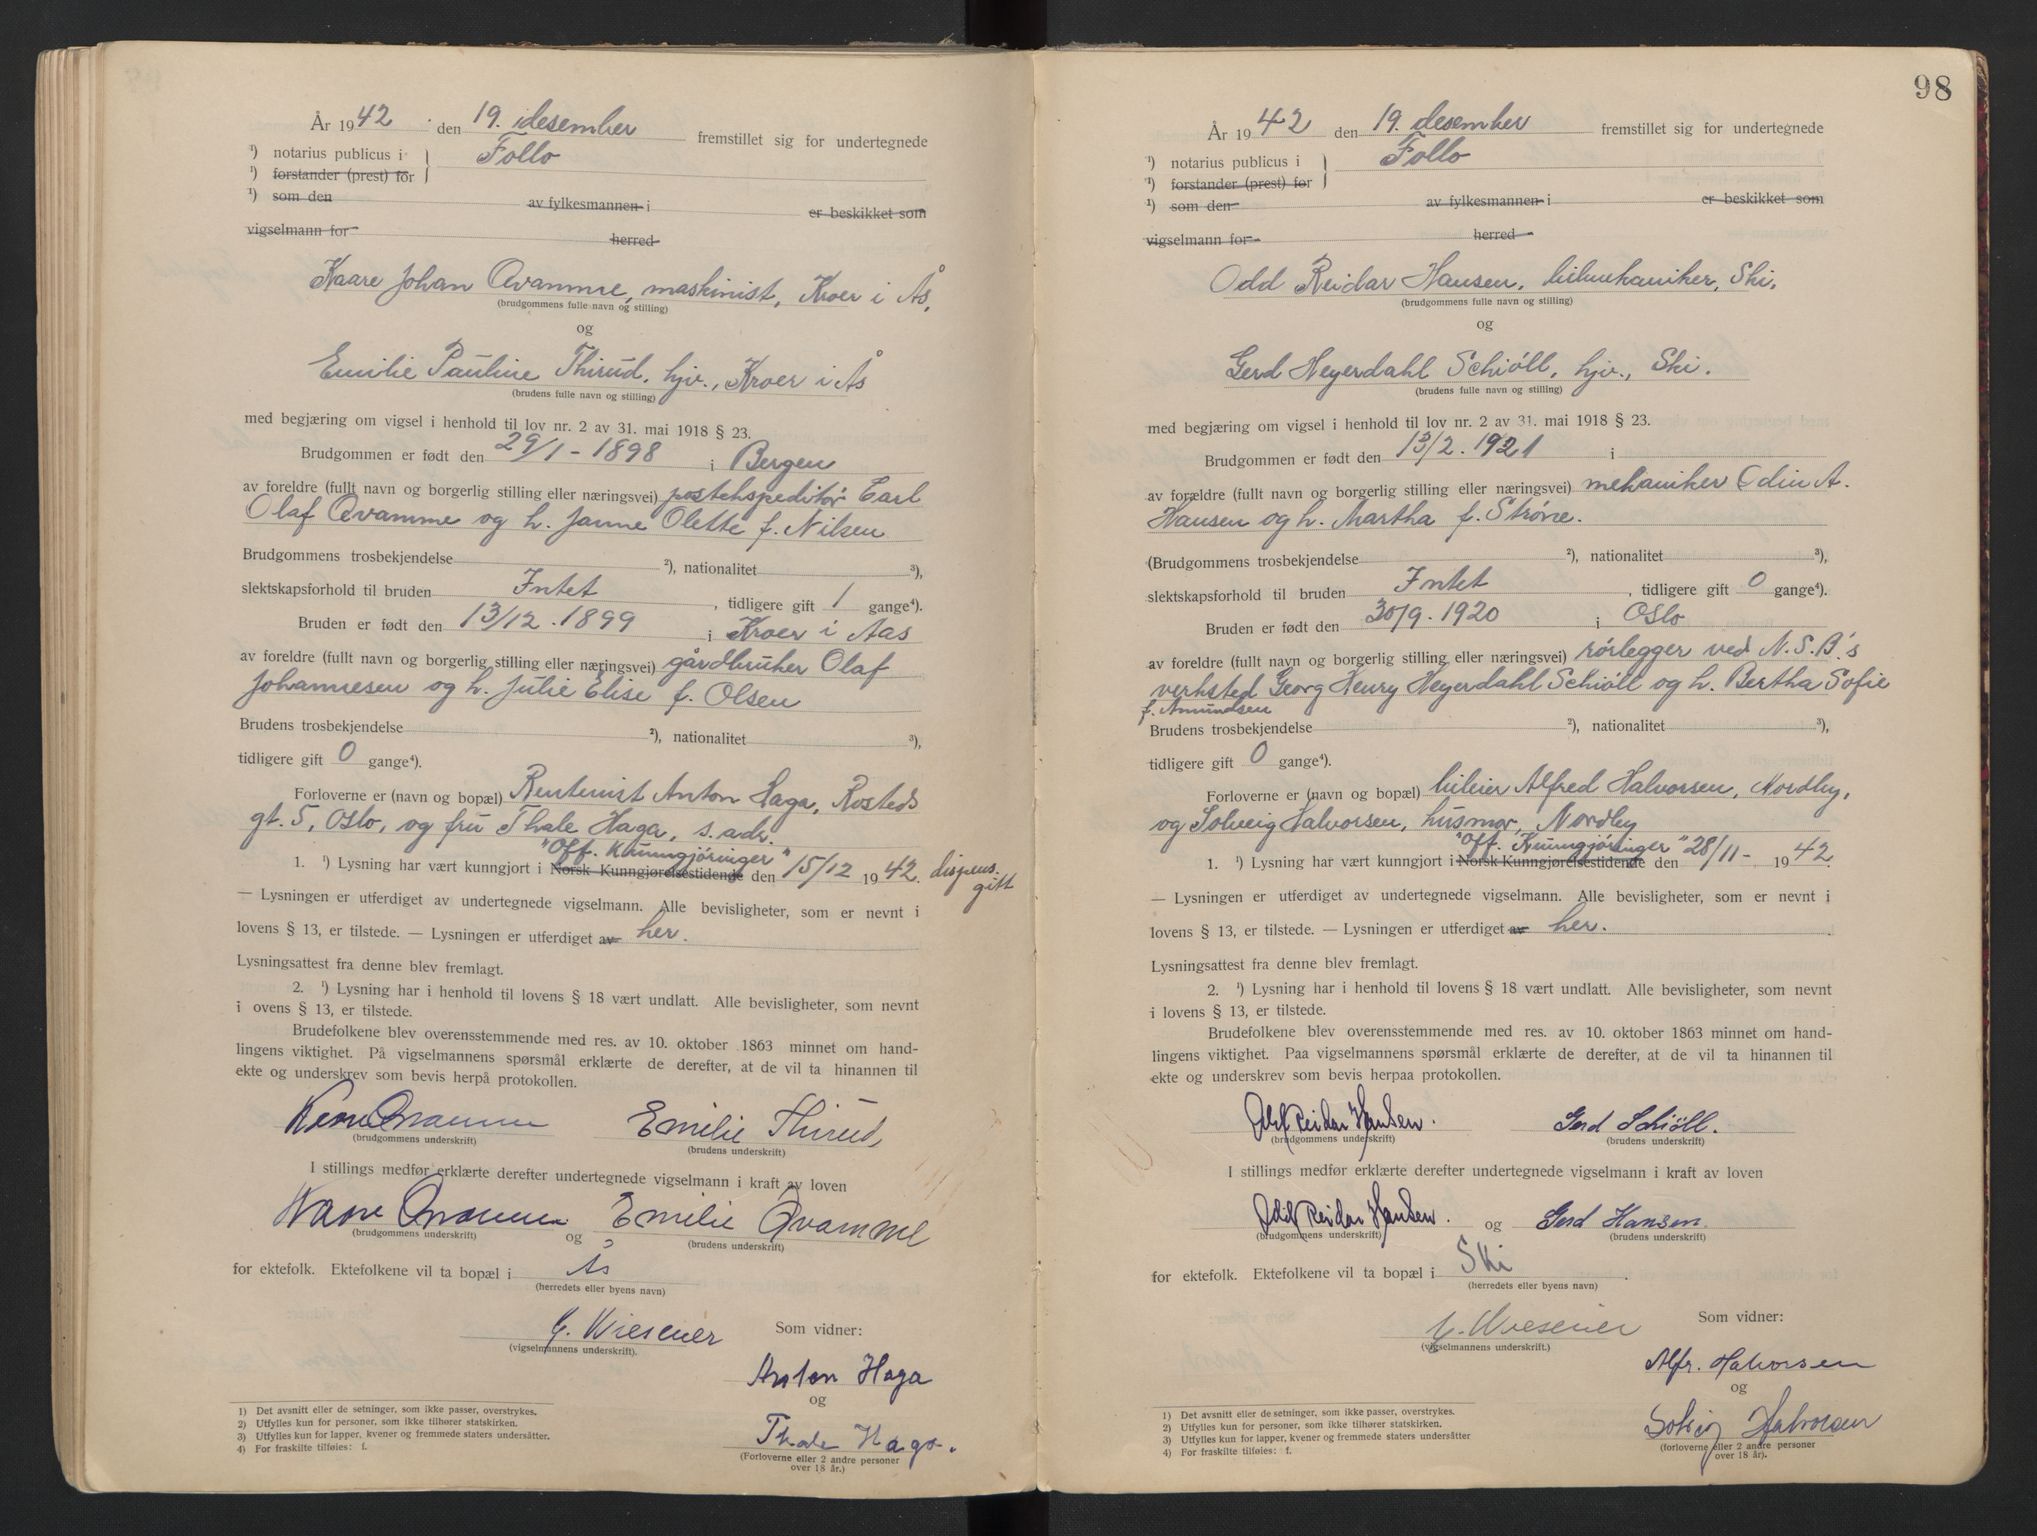 År 1942 den 19. desember fremstillet sig for undertegnede
¹) notarius publicus i } Follo
¹) forstander (prest) for
¹) som den av fylkesmannen i er beskikket som
vigselmann for herred
Kaare Johan Qvamme, maskinist, Kroer i Ås,
(brudgommens fulle navn og stilling)
og
Emilie Pauline Thirud, hjv., Kroer i Ås
(brudens fulle navn og stilling)
med begjæring om vigsel i henhold til lov nr. 2 av 31. mai 1918 § 23.
Brudgommen er født den 29/1 - 1898 i Bergen
av foreldre (fullt navn og borgerlig stilling eller næringsvei) postekspeditør Carl
Olaf Qvamme og h. Janne Olette f. Nilsen
Brudgommens trosbekjendelse ²), nationalitet ³),
slektskapsforhold til bruden Intet, tidligere gift 1 gange⁴).
Bruden er født den 13/12. 1899 i Kroer i Aas
av foreldre (fullt navn og borgerlig stilling eller næringsvei) gårdbruker Olaf
Johannesen og h. Julie Elise f. Olsen
Brudens trosbekjendelse ²), nationalitet ³),
tidligere gift 0 gange⁴).
Forloverne er (navn og bopæl) Rentenist Anton Haga, Rosteds
gt. 5, Oslo, og fru Thale Haga, s. adr.
"Off. Kunngjøringer"
1. ¹) Lysning har vært kunngjort i Norsk Kunngjørelsestidende den 15/12 1942. dispens.
gitt
— Lysningen er utferdiget av undertegnede vigselmann. Alle bevisligheter, som er nevnt i
lovens § 13, er tilstede. — Lysningen er utferdiget av her.
Lysningsattest fra denne blev fremlagt.
2. ¹) Lysning har i henhold til lovens § 18 vært undlatt. Alle bevisligheter, som nevnt
i ovens § 13, er tilstede.
Brudefolkene blev overensstemmende med res. av 10. oktober 1863 minnet om hand-
lingens viktighet. På vigselmannens spørsmål erklærte de derefter, at de vil ta hinannen til
ekte og underskrev som bevis herpå protokollen.
Kaare Qvamme Emilie Thirud
(brudgommens underskrift) (brudens underskrift)
I stillings medfør erklærte derefter undertegnede vigselmann i kraft av loven
Kaare Qvamme og Emilie Qvamme
(brudgommens underskrift) (brudens underskrift)
for ektefolk. Ektefolkene vil ta bopæl i Ås
(herredets eller byens navn)
G. Wiesener Som vidner:
(vigselmannens underskrift).
Anton Haga
og
Thale Haga.
(Forloverne eller 2 andre personer
over 18 år.)
1) Det avsnitt eller de setninger, som ikke passer, overstrykes.
2) Utfylles kun for personer, som ikke tilhører statskirken.
3) Utfylles kun for lapper, kvener og fremmede staters undersåtter.
4) For fraskilte tilføies: f.
98
År 1942 den 19. desember fremstillet sig for undertegnede
¹) notarius publicus i } Follo
¹) forstander (prest) for
¹) som den av fylkesmannen i er beskikket som
vigselmann for herred
Odd Reidar Hansen, bilmekaniker, Ski,
(brudgommens fulle navn og stilling)
og
Gerd Heyerdahl Schiøll, hjv., Ski.
(brudens fulle navn og stilling)
med begjæring om vigsel i henhold til lov nr. 2 av 31. mai 1918 § 23.
Brudgommen er født den 13/2. 1921 i
av forældre (fullt navn og borgerlig stilling eller næringsvei) mekaniker Odin A.
Hansen og h. Martha f. Strøne.
(Brudgommens trosbekjendelse ²), nationalitet ³),
slektskapsforhold til bruden Intet, tidligere gift 0 gange⁴).
Bruden er født den 30/9. 1920 i Oslo
av foreldre (fullt navn og borgerlig stilling eller næringsvei) rørlegger ved N.S.B.'s
verksted Georg Henry Heyerdahl Schiøll og h. Bertha Sofie
f. Amundsen
Brudens trosbekjendelse ²), nationalitet ³),
tidligere gift 0 gange⁴).
Forloverne er (navn og bopæl) bileier Alfred Halvorsen, Nordby,
og Solveig Halvorsen, husmor, Nordby
"Off. Kunngjøringer"
1. ¹) Lysning har vært kunngjort i Norsk Kunngjørelsestidende den 28/11 - 1942.
— Lysningen er utferdiget av undertegnede vigselmann. Alle bevisligheter, som er nevnt i
lovens § 13, er tilstede. — Lysningen er utferdiget av her.
Lysningsattest fra denne blev fremlagt.
2. ¹) Lysning har i henhold til lovens § 18 vært undlatt. Alle bevisligheter, som nevnt
i lovens § 13, er tilstede.
Brudefolkene blev overensstemmende med res. av 10. oktober 1863 minnet om hand-
lingens viktighet. Paa vigselmannens spørsmål erklærte de derefter, at de vil ta hinannen til
ekte og underskrev som bevis herpaa protokollen.
Odd Reidar Hansen. Gerd Schiøll.
(brudgommens underskrift) (brudens underskrift)
I stillings medfør erklærte derefter undertegnede vigselmann i kraft av loven
Odd Reidar Hansen. og Gerd Hansen.
(brudgommens underskrift) (brudens underskrift)
for ektefolk. Ektefolkene vil ta bopæl i Ski
(herredets eller byens navn)
G. Wiesener Som vidner:
(vigselmannens underskrift.)
Alfr. Halvorsen
og
Solveig Halvorsen
(forloverne eller 2 andre personer
over 18 år).
1) Det avsnitt eller de setninger, som ikke passer, overstrykes.
2) Utfylles kun for personer, som ikke tilhører statskirken.
3) Utfylles kun for lapper, kvener og fremmede staters undersåtter
4) For fraskilte tilføies: f.